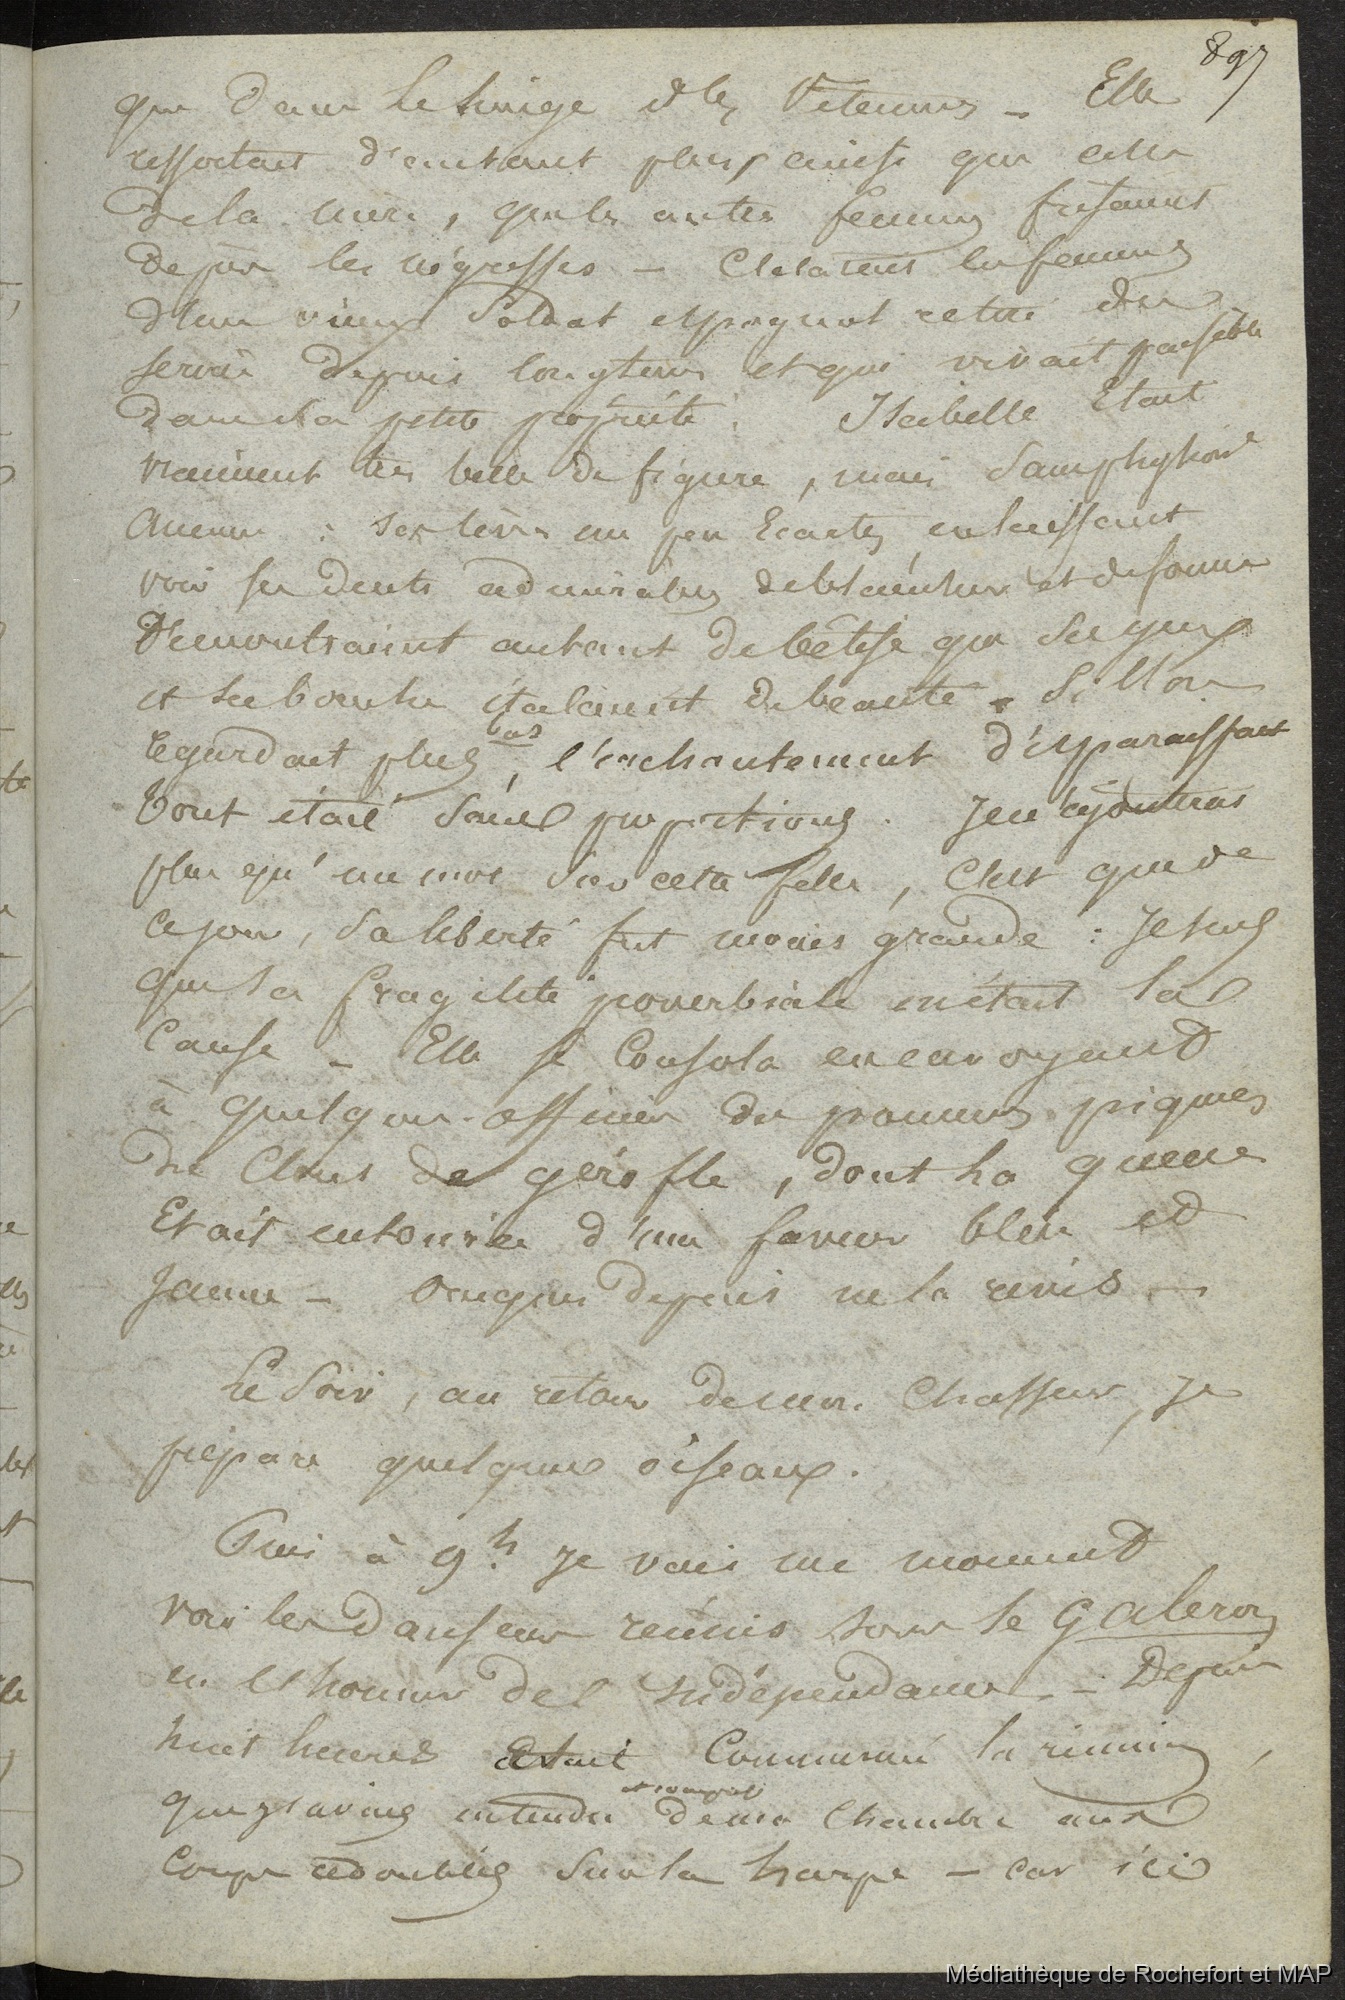 897
que dans le linge et les vêtemens _ Elle
ressortait d'autant plus, ainsi que celle
de la mère, que les autres femmes frisaient
de près les négresses _ C'était les femmes
d'un vieux soldat espagnol retiré du
service depuis longtems et qui vivait paisible
dans sa petite propriété. Isabelle Etait
vraiment très belle de figure, mais sans physion.ie
Aucune : ses lèvres un peu Ecartées, en laissant
voir ses dents admirables de blancheur et de forme
Démontraient autant de bêtise que ses yeux
et sa bouche étalaient de beauté. Si l'on
regardait plus bas, l'enchantement disparaissait
tout était sans proportions. Je n'ajouterais
plus qu'un mot sur cette fille, C'est que de
ce jour, sa liberté fut moins grande : Je sus
que sa fragilité proverbiale en était la
Cause _ Elle se Consola en envoyant
à quelques officiers des pommes piquées
de Clous de gérofle, dont la queue
Etait entourée d'une faveur bleue et
Jaune _ Oncques depuis ne la revis _
Le Soir, au retour de mon Chasseur, je
prépare quelques oiseaux.
Puis à 9.h je vais un moment
voir les danseurs réunis sous le Galeron
en l'honneur de l'indépendance _ Depuis
huit heures Etait Commencée la réunion,
que j'avais entendu de ma Chambre aux
Coups redoublés sur la harpe _ car ici
Médiathèque de Rochefort et MAP